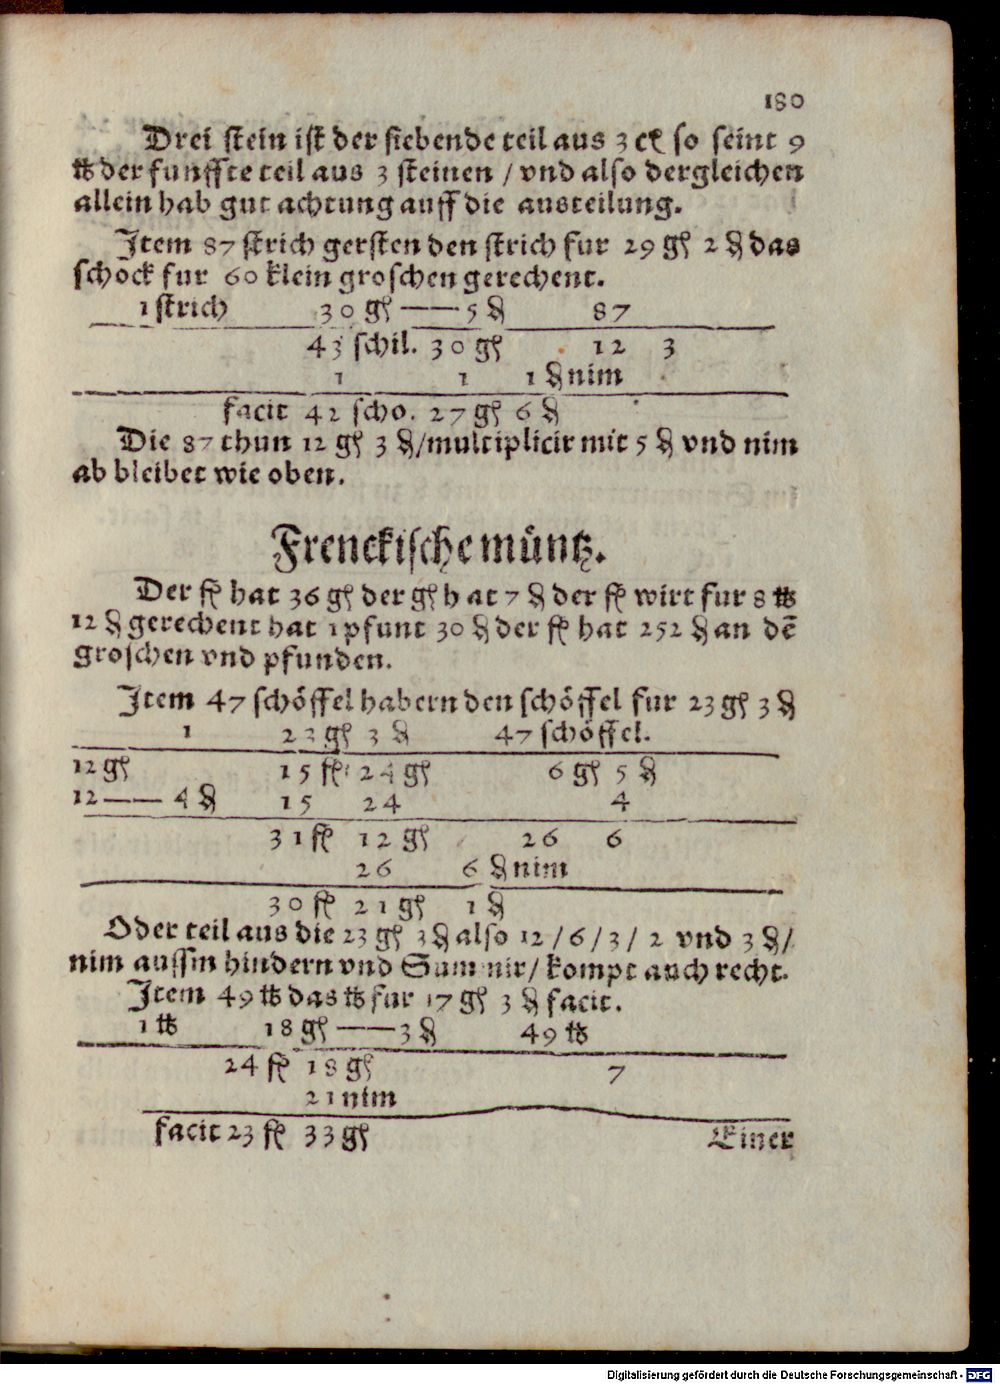 180
Drei stein ist der siebende teil aus 3 ct so seint 9
℔ der funffte teil aus 3 steinen / vnd also dergleichen
allein hab gut achtung auff die austeilung.
Item 87 strich gersten den strich fur 29 gl 2 ₰ das
schock fur 60 klein groschen gerechent.
1 strich 30 gl —— 5 ₰ 87
43 schil. 30 gl 12 3
1 1 1 ₰ nim
facit 42 scho. 27 gl 6 ₰
Die 87 thun 12 gl 3 ₰/multiplicir mit 5 ₰ vnd nim
ab bleibet wie oben.
Frenckische müntz.
Der fl hat 36 gl der gl hat 7 ₰ der fl wirt fur 8 ℔
12 ₰ gerechent hat 1 pfunt 30 ₰ der fl hat 252 ₰ an dē
groschen vnd pfunden.
Item 47 schöffel habern den schöffel fur 23 gl 3 ₰
1 23 gl 3 ₰ 47 schöffel.
12 gl 15 fl 24 gl 6 gl 5 ₰
12 —— 4 ₰ 15 24 4
31 fl 12 gl 26 6
26 6 ₰ nim
30 fl 21 gl 1 ₰
Oder teil aus die 23 gl 3 ₰ also 12 / 6 / 3 / 2 vnd 3 ₰/
nim aussm hindern vnd Summir/ kompt auch recht.
Item 49 ℔ das ℔ fur 17 gl 3 ₰ facit.
1 ℔ 18 gl —— 3 ₰ 49 ℔
24 fl 18 gl 7
21 nim
facit 23 fl 33 gl Einer
Digitalisierung gefördert durch die Deutsche Forschungsgemeinschaft - DFG